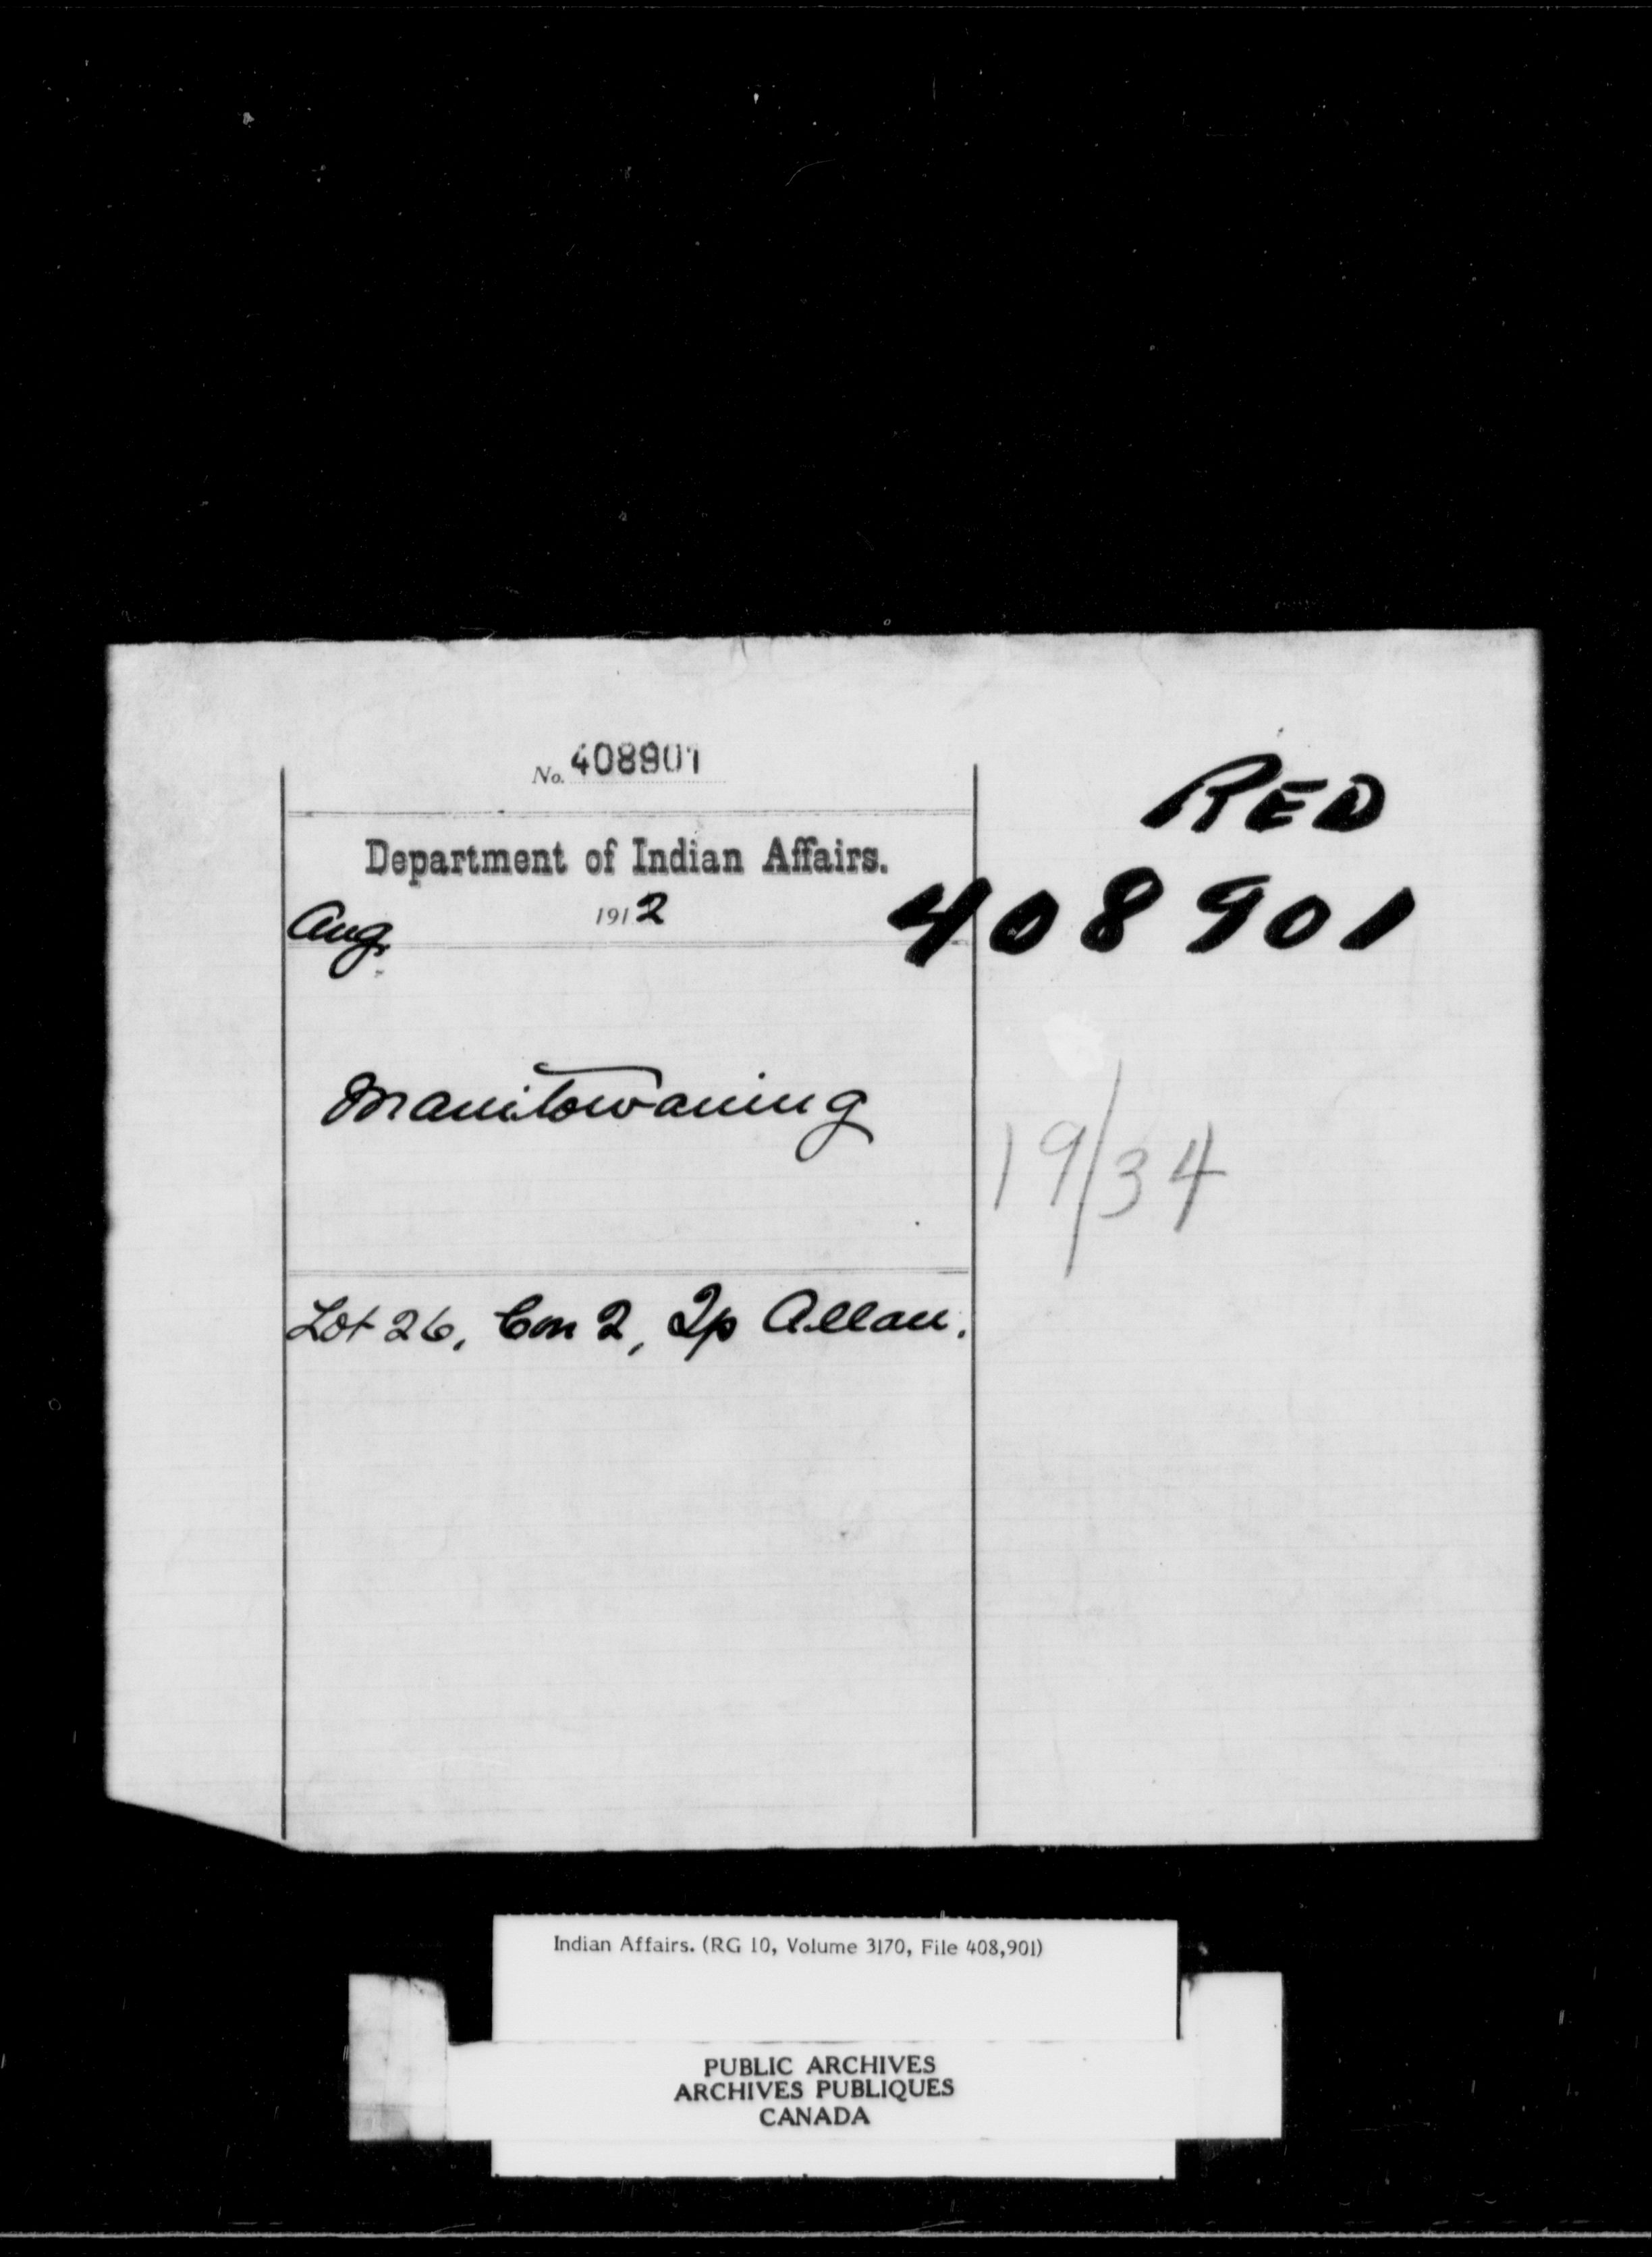 No. 408901
RED
Department of Indian Affairs.
408901
Aug. 1912
Manitowaning
19/34
Lot 26, Con 2, Tp Allan.
Indian Affairs. (RG 10, Volume 3170, File 408,901)
PUBLIC ARCHIVES
ARCHIVES PUBLIQUES
CANADA